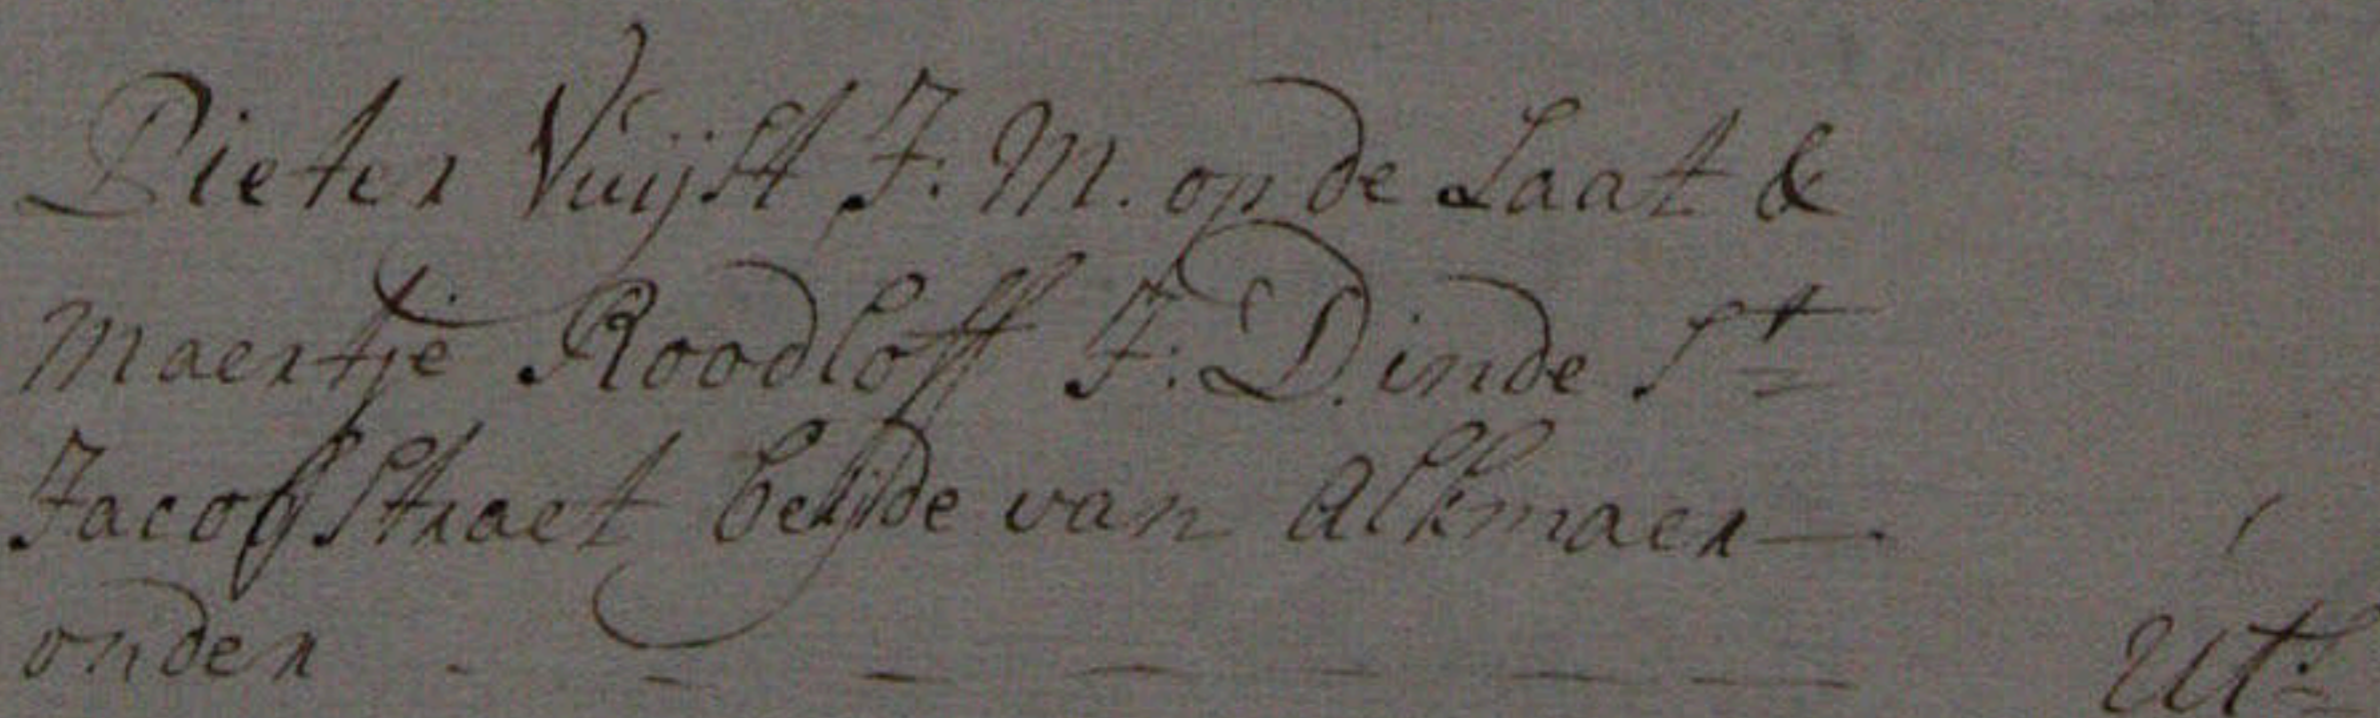 Pieter Vuijst J: M. op de Laat &
Maertje Roodloff J: D. in de St
Jacobs Straet beijde van Alkmaer —
onder - - - - - - - Ut: